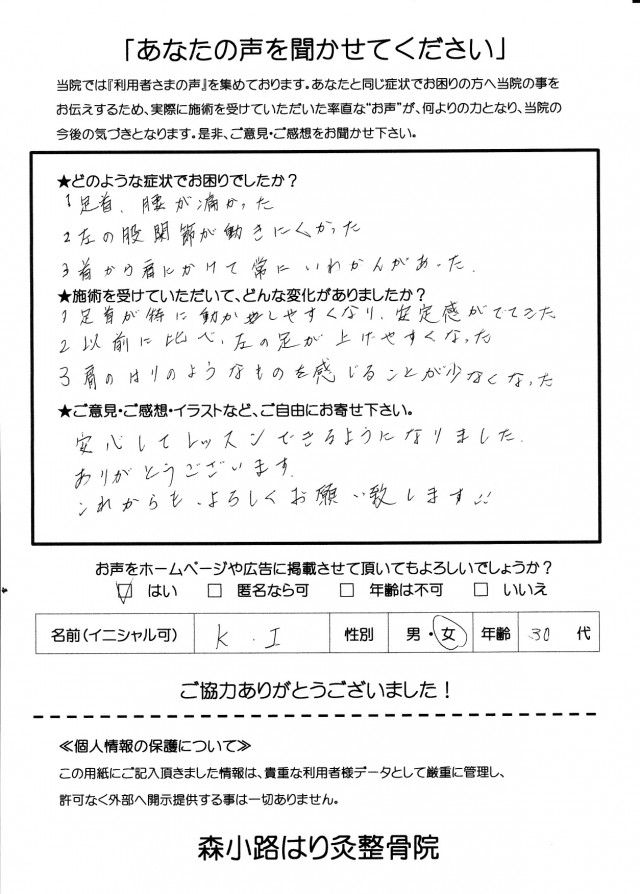 「あなたの声を聞かせてください」
当院では『利用者さまの声』を集めております。あなたと同じ症状でお困りの方へ当院の事を
お伝えするため、実際に施術を受けていただいた率直な“お声”が、何よりの力となり、当院の
今後の気づきとなります。是非、ご意見・ご感想をお聞かせ下さい。
★どのような症状でお困りでしたか?
1 足首、腰が痛かった
2 左の股関節が動きにくかった
3 首から肩にかけて常にいわかんがあった.
★施術を受けていただいて、どんな変化がありましたか?
1 足首が特に動かしやすくなり、安定感がでてきた
2 以前に比べ、左の足が上げやすくなった
3 肩のはりのようなものを感じることが少なくなった
★ご意見・ご感想・イラストなど、ご自由にお寄せ下さい。
安心してレッスンできるようになりました.
ありがとうございます.
これからも、よろしくお願い致します!!
お声をホームページや広告に掲載させて頂いてもよろしいでしょうか?
☑ はい □ 匿名なら可 □ 年齢は不可 □ いいえ
名前(イニシャル可) K . I 性別 男・女 年齢 30 代
ご協力ありがとうございました!
≪個人情報の保護について≫
この用紙にご記入頂きました情報は、貴重な利用者様データとして厳重に管理し、
許可なく外部へ開示提供する事は一切ありません。
森小路はり灸整骨院